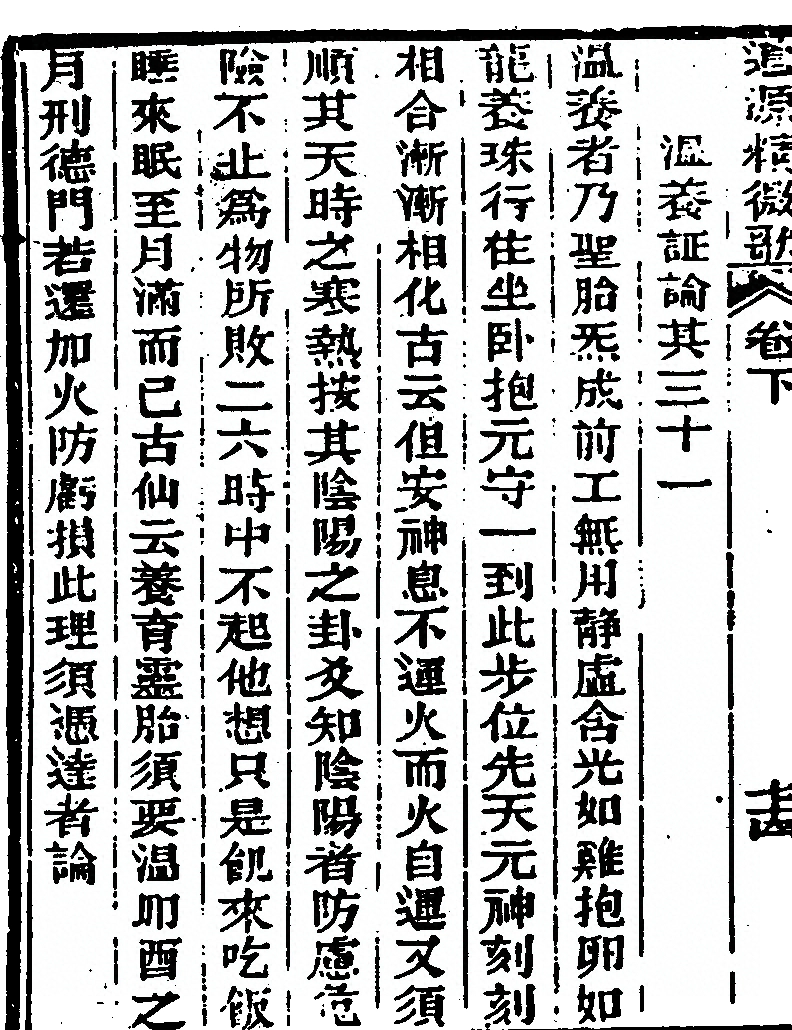 道源精微歌 卷下
溫養証論其三十一
溫養者乃聖胎炁成前工無用静虛含光如雞抱卵如
龍養珠行住坐卧抱元守一到此步位先天元神刻刻
相合漸漸相化古云但安神息不運火而火自運又須
順其天時之寒熱按其陰陽之卦爻知陰陽者防慮危
險不止為物所敗二六時中不起他想只是飢來吃飯
睡來眠至月滿而已古仙云養育靈胎須要温卯酉之
月刑德門若還加火防虧損此理須憑達者論